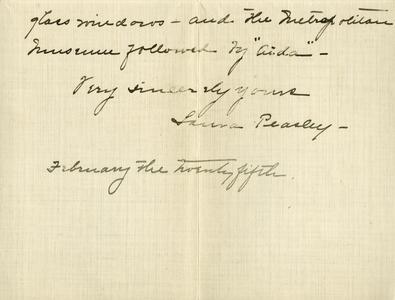 glass windows - and the Metropolitan
Museum followed by "Aida" -
Very sincerely yours
Laura Peasley -
February the twenty fifth.